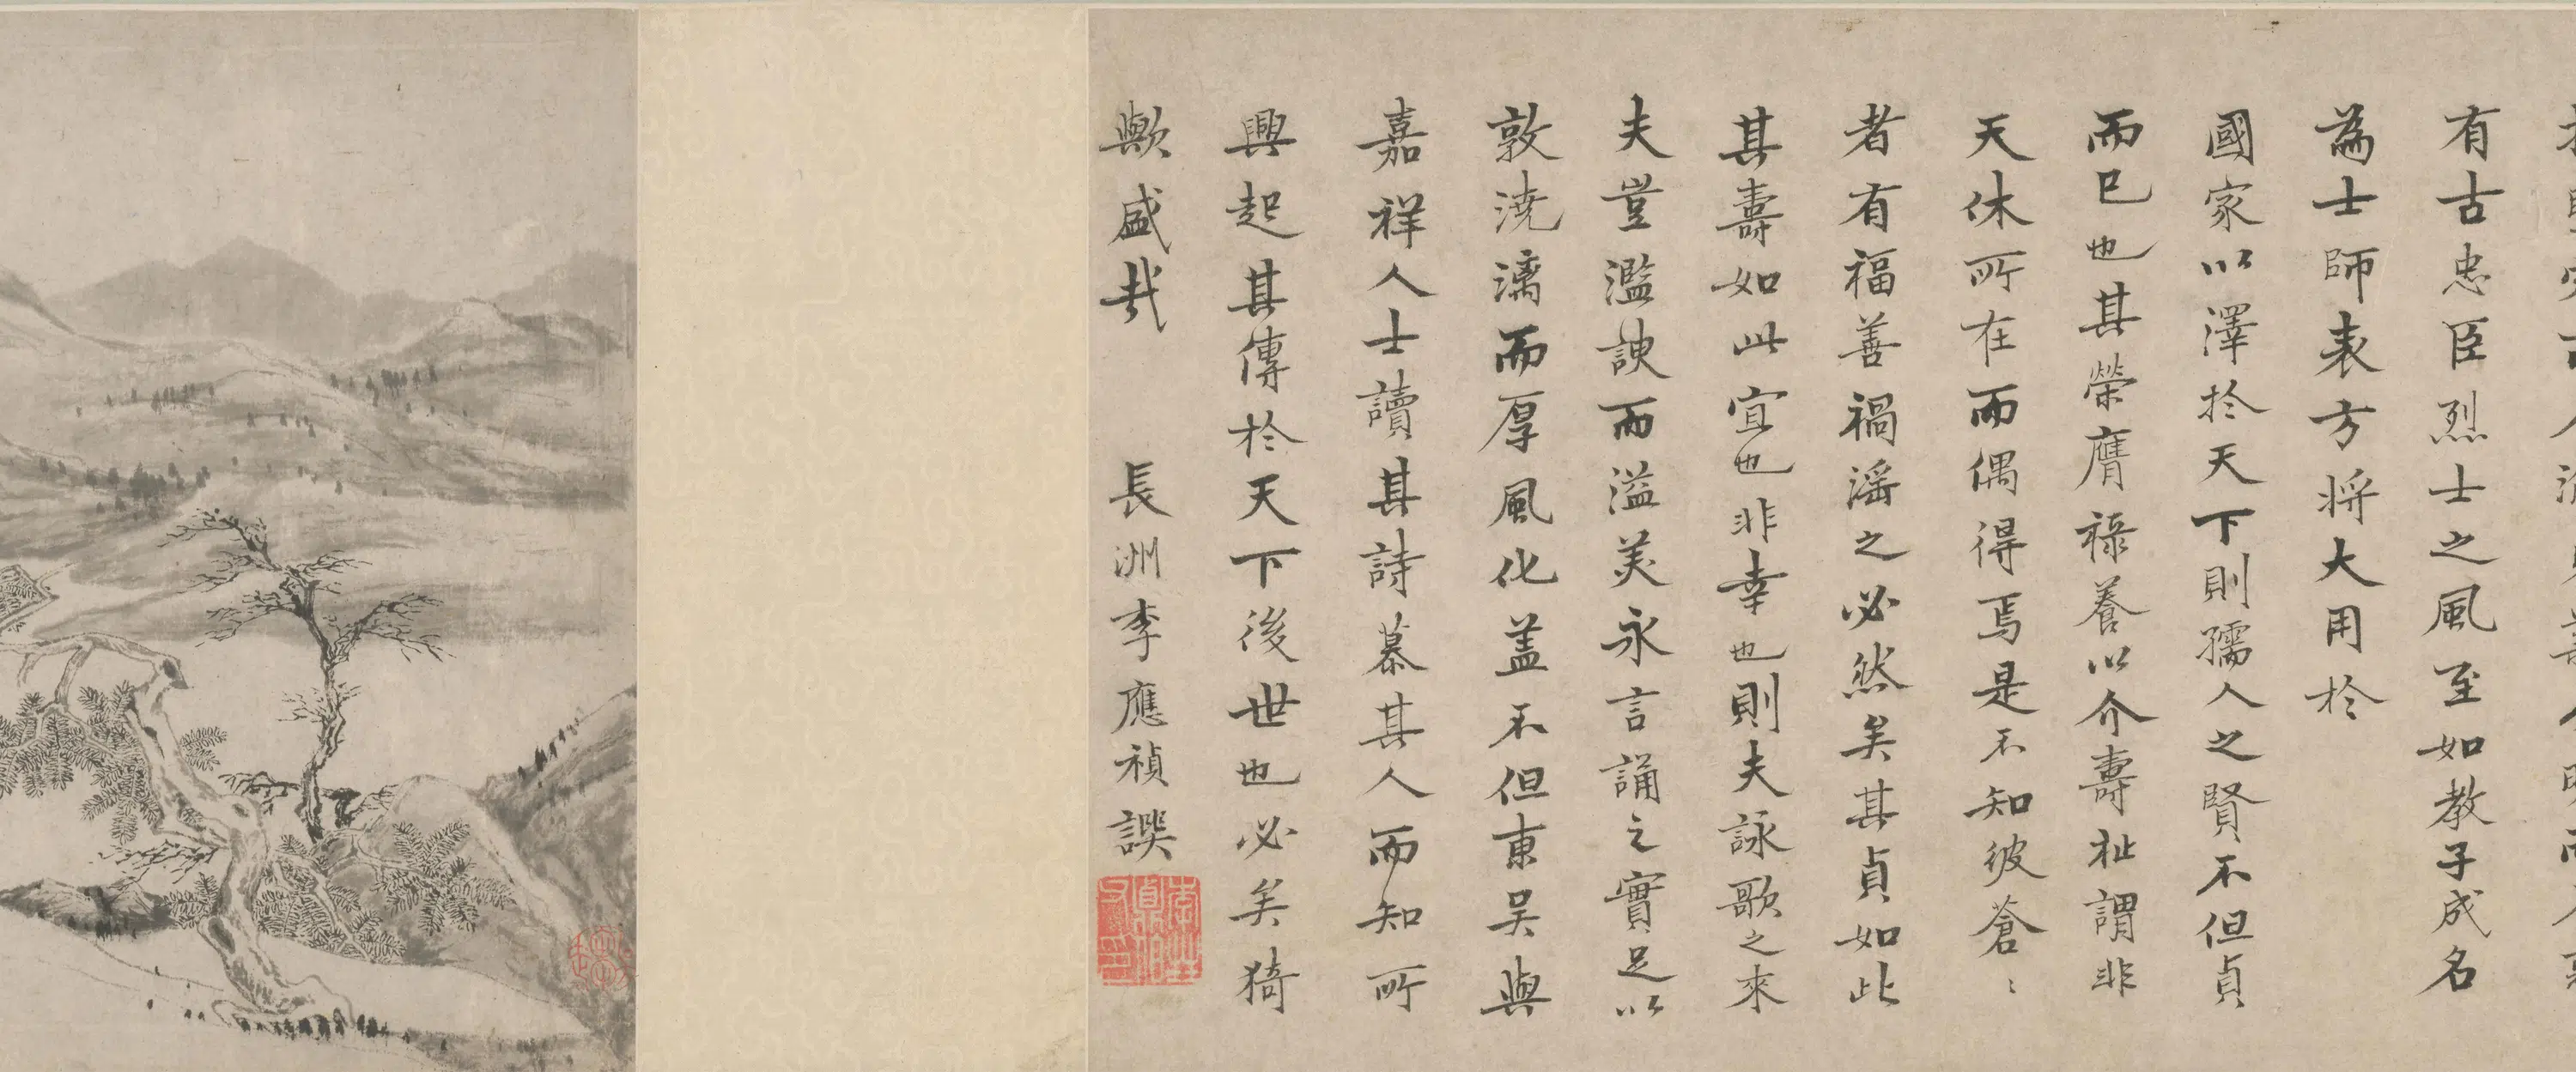 有古忠臣烈士之風至如教子成名
為士師表方将大用於
國家以澤於天下則孺人之賢不但貞
而已也其榮膺祿養以介壽祉謂非
天休所在而偶得焉是不知彼蒼〻
者有福善禍淫之必然矣其貞如此
其壽如此宜也非幸也則夫詠歌之來
夫豈濫諛而溢美永言誦之實足以
敦澆漓而厚風化盖不但東吴與
嘉祥人士讀其詩慕其人而知所
興起其傳於天下後世也必矣猗
歟盛哉 長洲李應禎譔